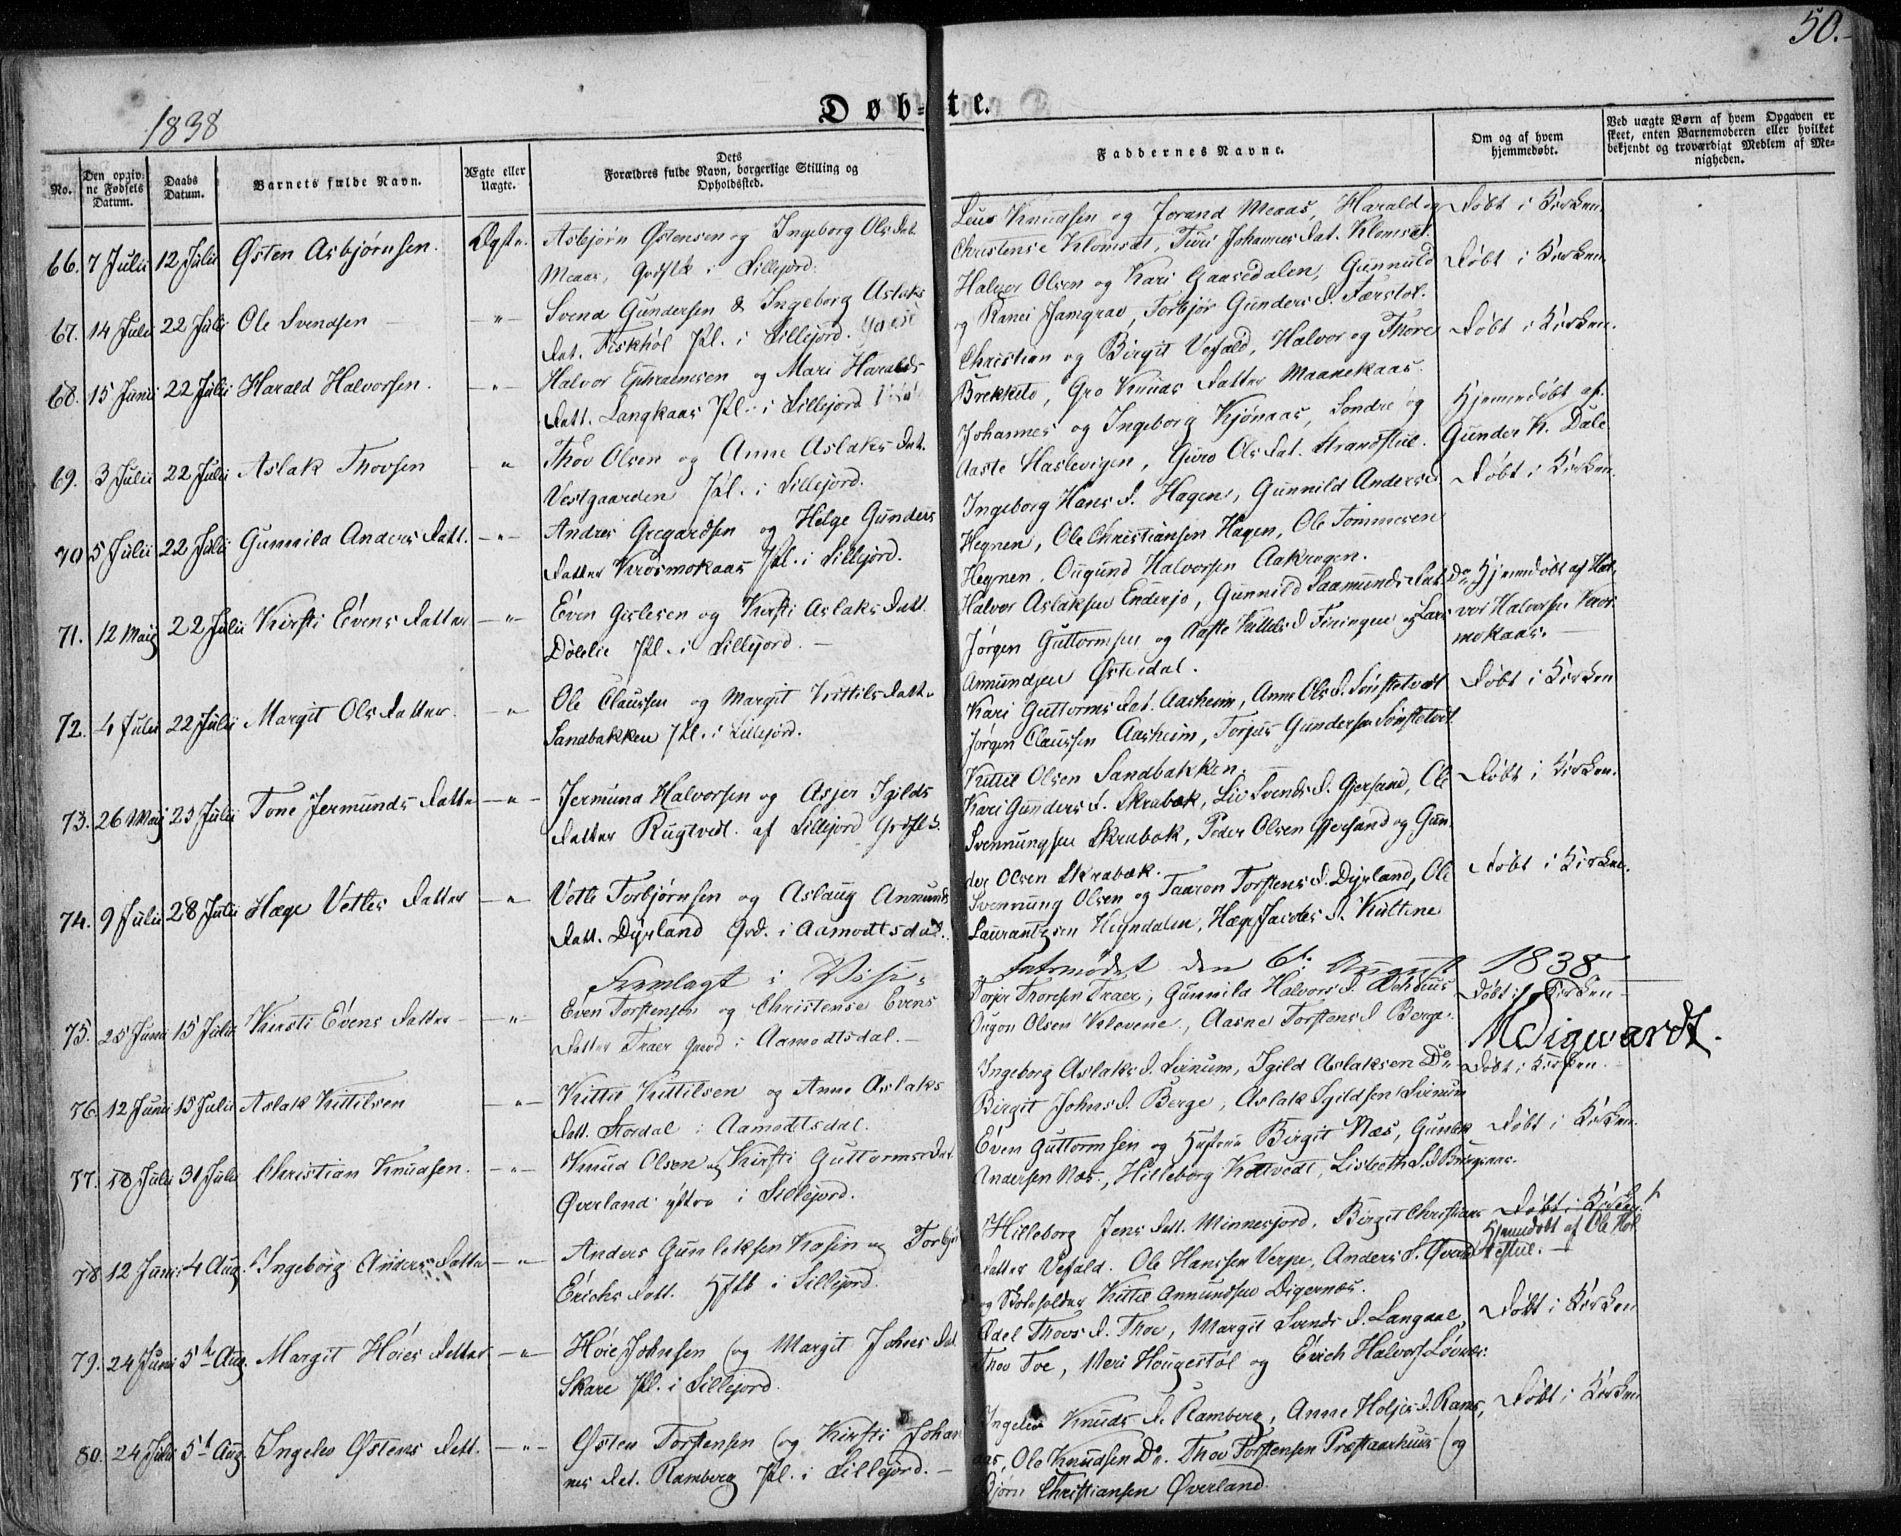 50.
1838
Døbte.
No.
Den opgivne Fødsels Datum.
Daabs Datum.
Barnets fulde Navn.
Ægte eller Uægte.
Dets Forældres fulde Navn, borgerlige Stilling og Opholdssted.
Faddernes Navne.
Om og af hvem hjemmedøbt.
Ved uægte Børn af hvem Opgaven er skeet, enten Barnemoderen eller hvilket bekjendt og troværdigt Medlem af Menigheden.
66. 7 Julii 12 Julii Østen Asbjørnsen. Ægte. Asbjørn Østensen og Ingeborg Ols Dat.
Moaas, i Sillejord.
Knudsen og Jorand Moaas, Harald og
Christense Klomset, Turi Johannes Dat. Klomset.
Døbt i Kirken.
67. 14 Julii 22 Julii Ole Svendsen - " - Svend Gundersen & Ingeborg Aslaks
Dat. Fiskhøl Pl. i Sillejord.
Halvor Olsen og Kari Gaasedalen, Gunnuld
og Ranei Jamgrav, Torbjør Gunders D. Færstøl.
Døbt i Kirken.
68. 15 Junii 22 Julii Harald Halvorsen. - " - Halvor Ephraimsen og Mari Haralds
Datt. Langkaas Pl. i Sillejord
Christian og Birgit Vefald, Halvor og Thore
Brekketo, Gro Knuds Datter Maanekaas.
Døbt i Kirken.
69. 3 Julii 22 Julii Aslak Thovsen - " Thov Olsen og Anne Aslaks Dat.
Vestgaarden Pl. i Sillejord.
Johannes og Ingeborg Kjønaas, Sondre og
Aaste Haslevigen, Guro Ols Dat. Strandstul.
Hjemmedøbt af
Gunder K. Dale
70 5 Julii 22 Julii Gunnild Anders Datt. - " - Andres Gregardsen og Helge Gunders
Datter Krosmokaas Pl. i Sillejord.
Ingeborg Hans D. Hagen, Gunnild Anders D.
Hegnen, Ole Christiansen Hagen, Ole Tommesen
Hegnen. Ougund Halvorsen Aakragen.
Døbt i Kirken.
71. 12 Maij 22 Julii Kirsti Evens Datter - " - Even Gislesen og Kirsti Aslaks Datt.
Dølelie Pl. i Sillejord. -
Halvor Aslaksen Enderjo, Gunnild Saamunds Dat. Do
Jørgen Guttormsen og Aaste Kittels D. Finingen og Lars
Amundsen Østedal.
Hjemmdøbt af Hal-
vor Halvorsen Kros-
mokaas.
72. 4 Julii 22 Julii Margit Ols Datter. - " Ole Claussen og Margit Kittils Datt.
Sandbakken Pl. i Sillejord.
Kari Guttorms Dat. Aasheim, Anne Ols D. Sønstetvedt
Jørgen Claussen Aasheim, Torjus Gundersen Sønstetvet
Kittil Olsen Sandbakken.
Døbt i Kirken
73. 26 Maij 23 Julii Tone Jermunds Datter - " - Jermund Halvorsen og Asjer Igilds
Datter Rugtvedt. af Sillejord
Kari Gunders D. Skrabæk, Liv Svends D. Gjersund, Ole
Svennungsen Skrabæk, Peder Olsen Gjersund og Gun-
der Olsen Skrabæk.
Døbt i Kirken.
74. 9 Julii 28 Julii Hæge Vetles Datter - " Vetle Torbjørnsen og Aslaug Annunds
Datt. Dyrland Grd. i Aamodtsdal.
Svennung Olsen og Taaron Torstens D. Dyrland, Ole
Laurantzsen Hegndalen, Hæge Jacobs D. Kultine
Døbt i Kirken.
Fremlagt i Visi-
tatsmødet den 6te August 1838
MSigwardt.
75. 25 Junii 15 Julii Kirsti Evens Datter - " - Even Torstensen og Christense Evens
Datter Traer Gaard i Aamodtsdal. -
Torjer Thoresen Traer, Gunnild Halvors D.
Ougon Olsen Kleverne, Aasne Torstens D. Berge.
Døbt i Kirken -
76. 12 Junii 15 Julii Aslak Kittilsen - " - Kittil Kittilsen og Anne Aslaks
Datt. Stordal i Aamodtsdal.
Ingeborg Aslaks D. Sirnum, Igild Aslaksen Do
Birgit Johns D. Berge, Aslak Igildsen Sirnum
Døbt i Kirken.
77. 18 Julii 31 Julii Christian Knudsen. - " - Knud Olsen og Kirsti Guttorms Dat
Øverland yttre i Sillejord.
Even Guttormsen og Hustrue Birgit Næs, Gunlek
Andersen Næs, Hilleborg Kotvedt, Lisbeth
Døbt i Kirken.
78 12 Junii 4 Aug. Ingeborg Anders Datter - " - Anders Gunleksen Kasin og Torbjør
Erichs Datt. i Sillejord.
Hilleborg Jens Datt. Minnesjord, Birgit Christians
Datter Vefald. Ole Hanssen Verpe, Anders D. Øverland
og Skoleholder Kittil Annundsen Digernæs.
Døbt i Kirken
Hjemmdøbt af Ole
79. 24 Junii 5te Aug. Margit Høies Datter - " - Høie Johnsen og Margit Johnes Dat
Skare Pl. i Sillejord.
Ædel Thovs D. Thov, Margit Svends D. Langaal,
Thov Toe, Mari Hougestøl og Erich Halvors. Løvaas.
Døbt i Kirken
80. 24 Julii 5t Aug. Ingelev Østens Datt. - " - Østen Torstensen og Kirsti Johan-
nes Dat. Ramberg Pl. i Sillejord. -
Ingelev Knuds D. Ramberg, Anne Holjes D. Rams-
aas, Ole Knudsen Do. Thov Torstensen Præstaarhuus og
Bjørn Christiansen Øverland.
Døbt i Kirken